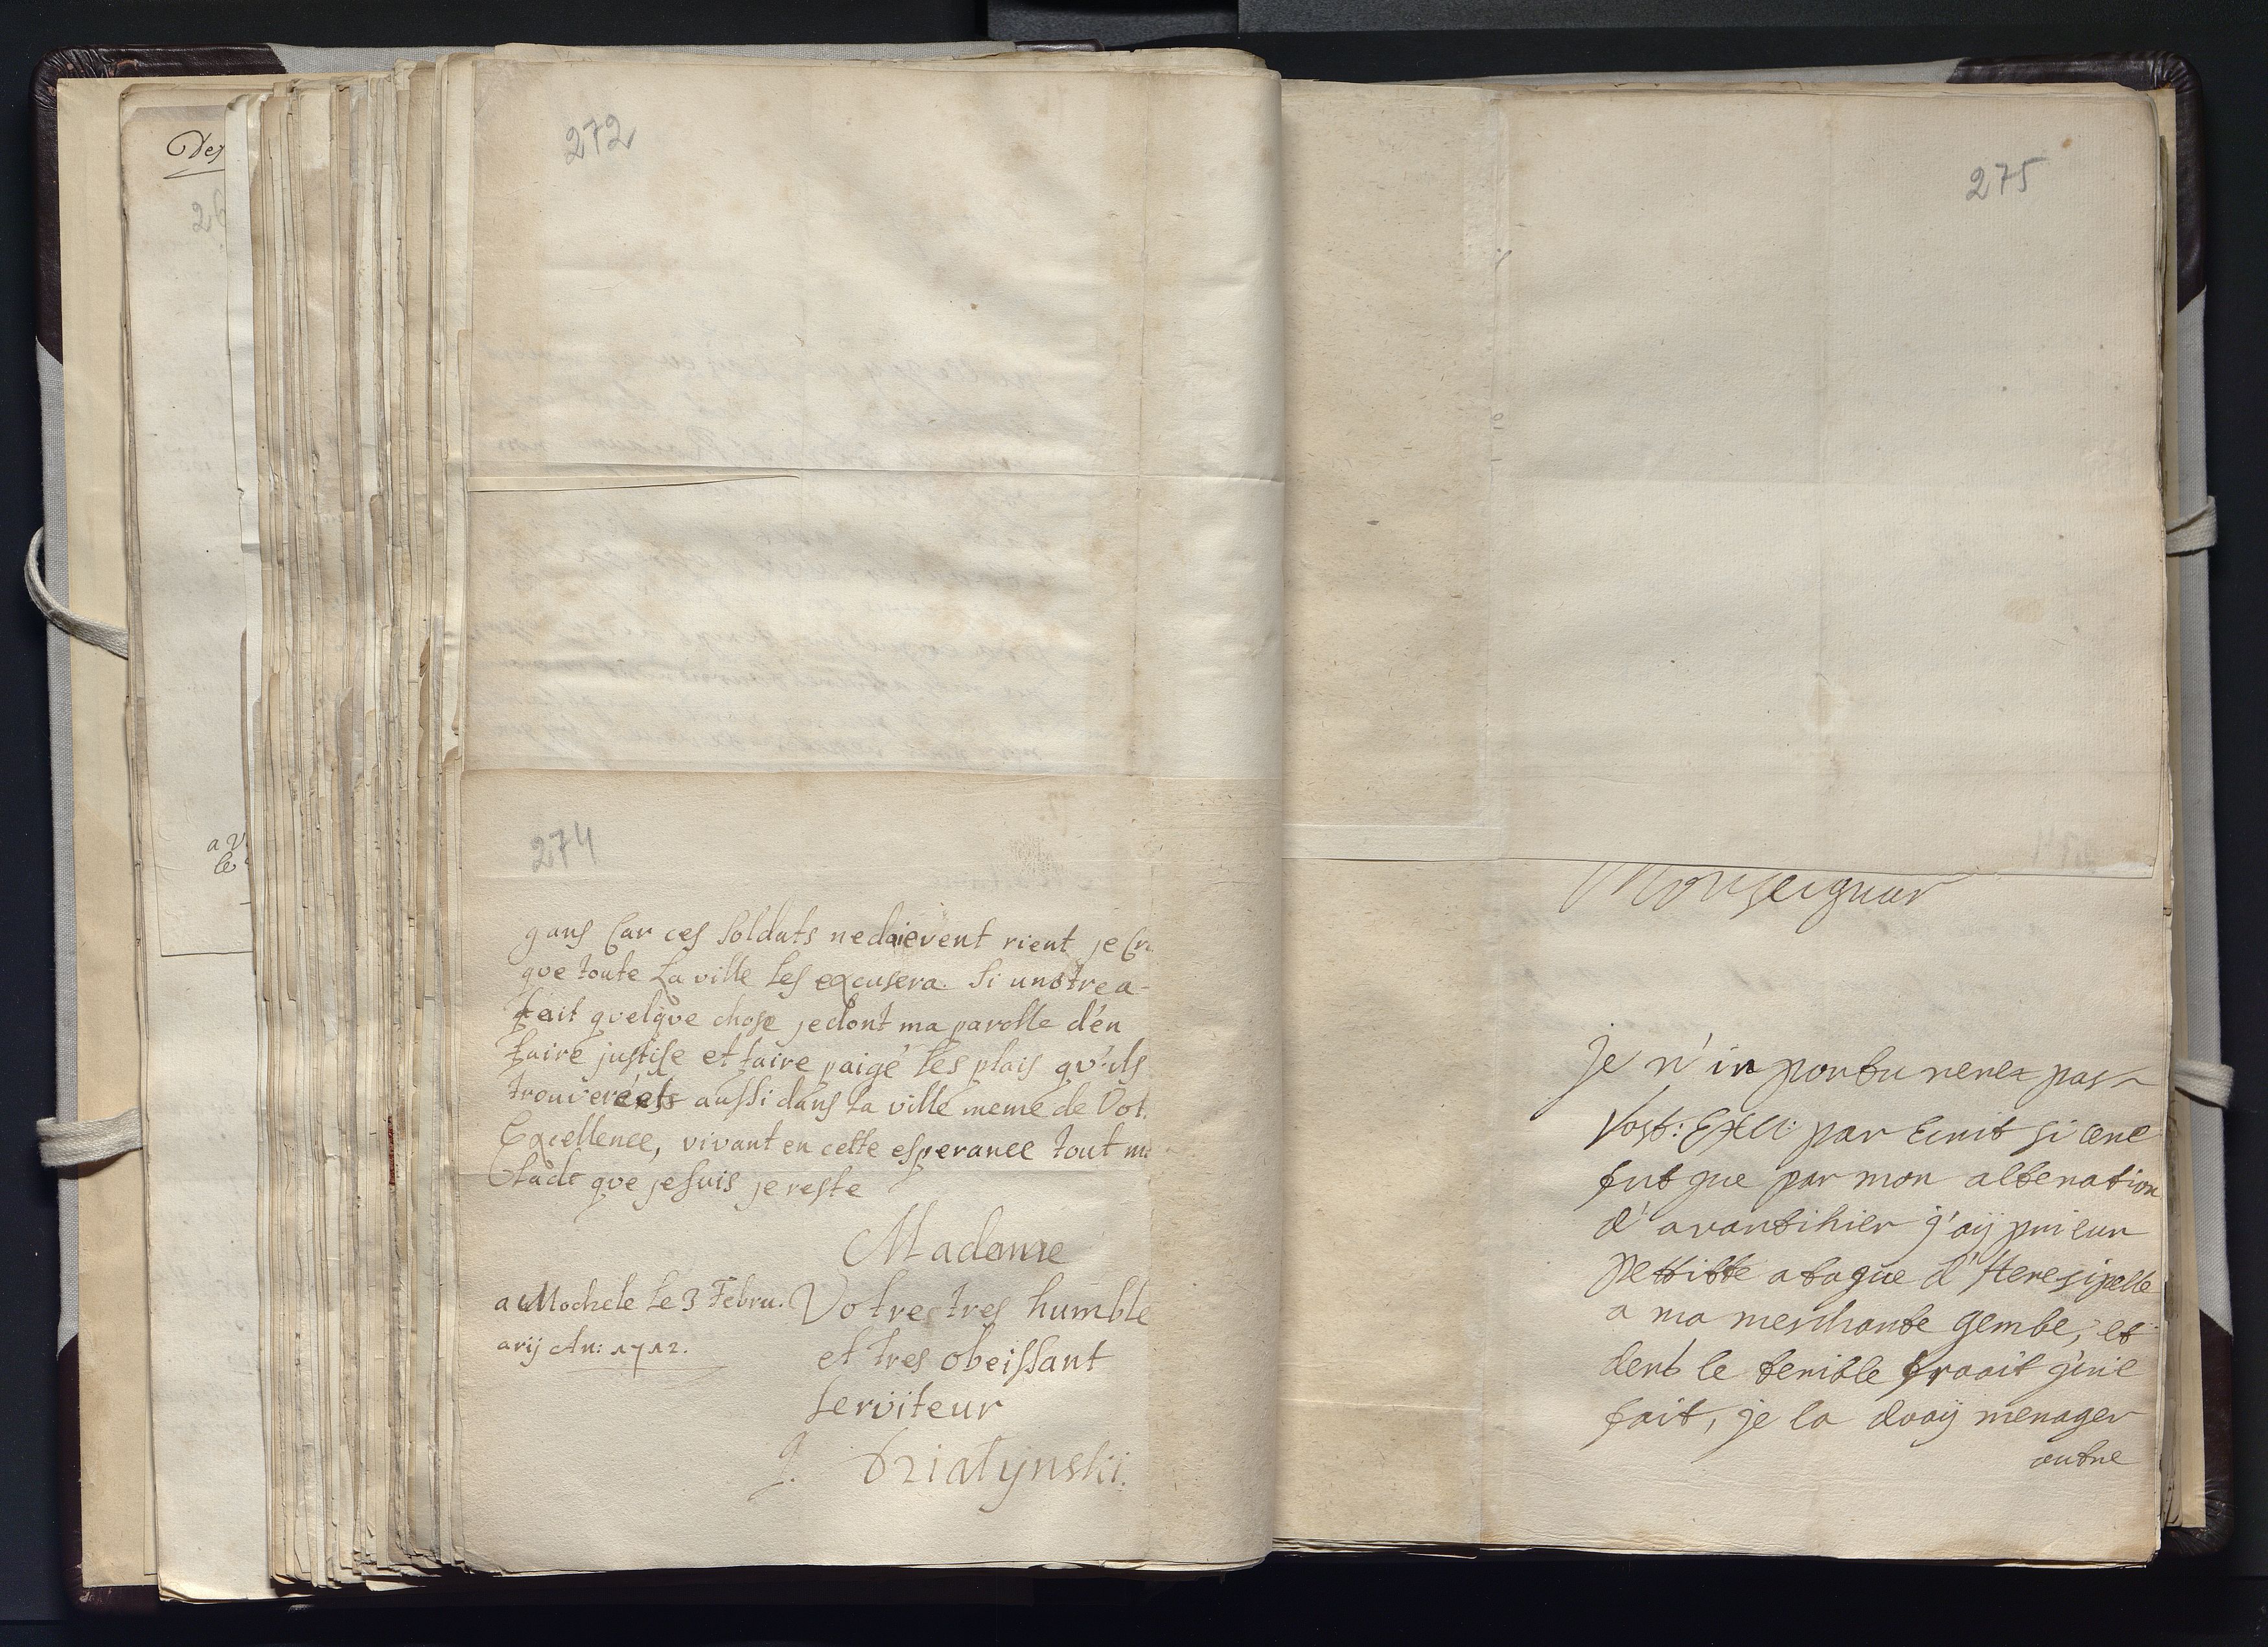 Des
26
a V
le
272
274
gans Car ces Soldats nedoievent rient je Cr
que toute La ville Les excusera. Si unotre a-
fait quelque chose jedont ma parolle d'én
faire justise et faire paigé Les plais qu'ils
trouveréets aussi dans La ville meme de Vot.
Excellence, vivant en cette esperance tout m
lade que jesuis je reste
Madame
a Mochele Le 3 Febru. Votre tres humble
arij An: 1712.
et tres obeissant
Serviteur
Działynski.
275
Monseignuer
Je n'in portu nerez pas
Vost: Exll: par Ecrit si cene
fut que par mon altenation
d'avantihier j'aÿ pri eun
pettitte ataque d'Heresipelle
a ma meschante gembe, et
dent le terrible froait qu'il
fait, je la doaÿ menager
outre